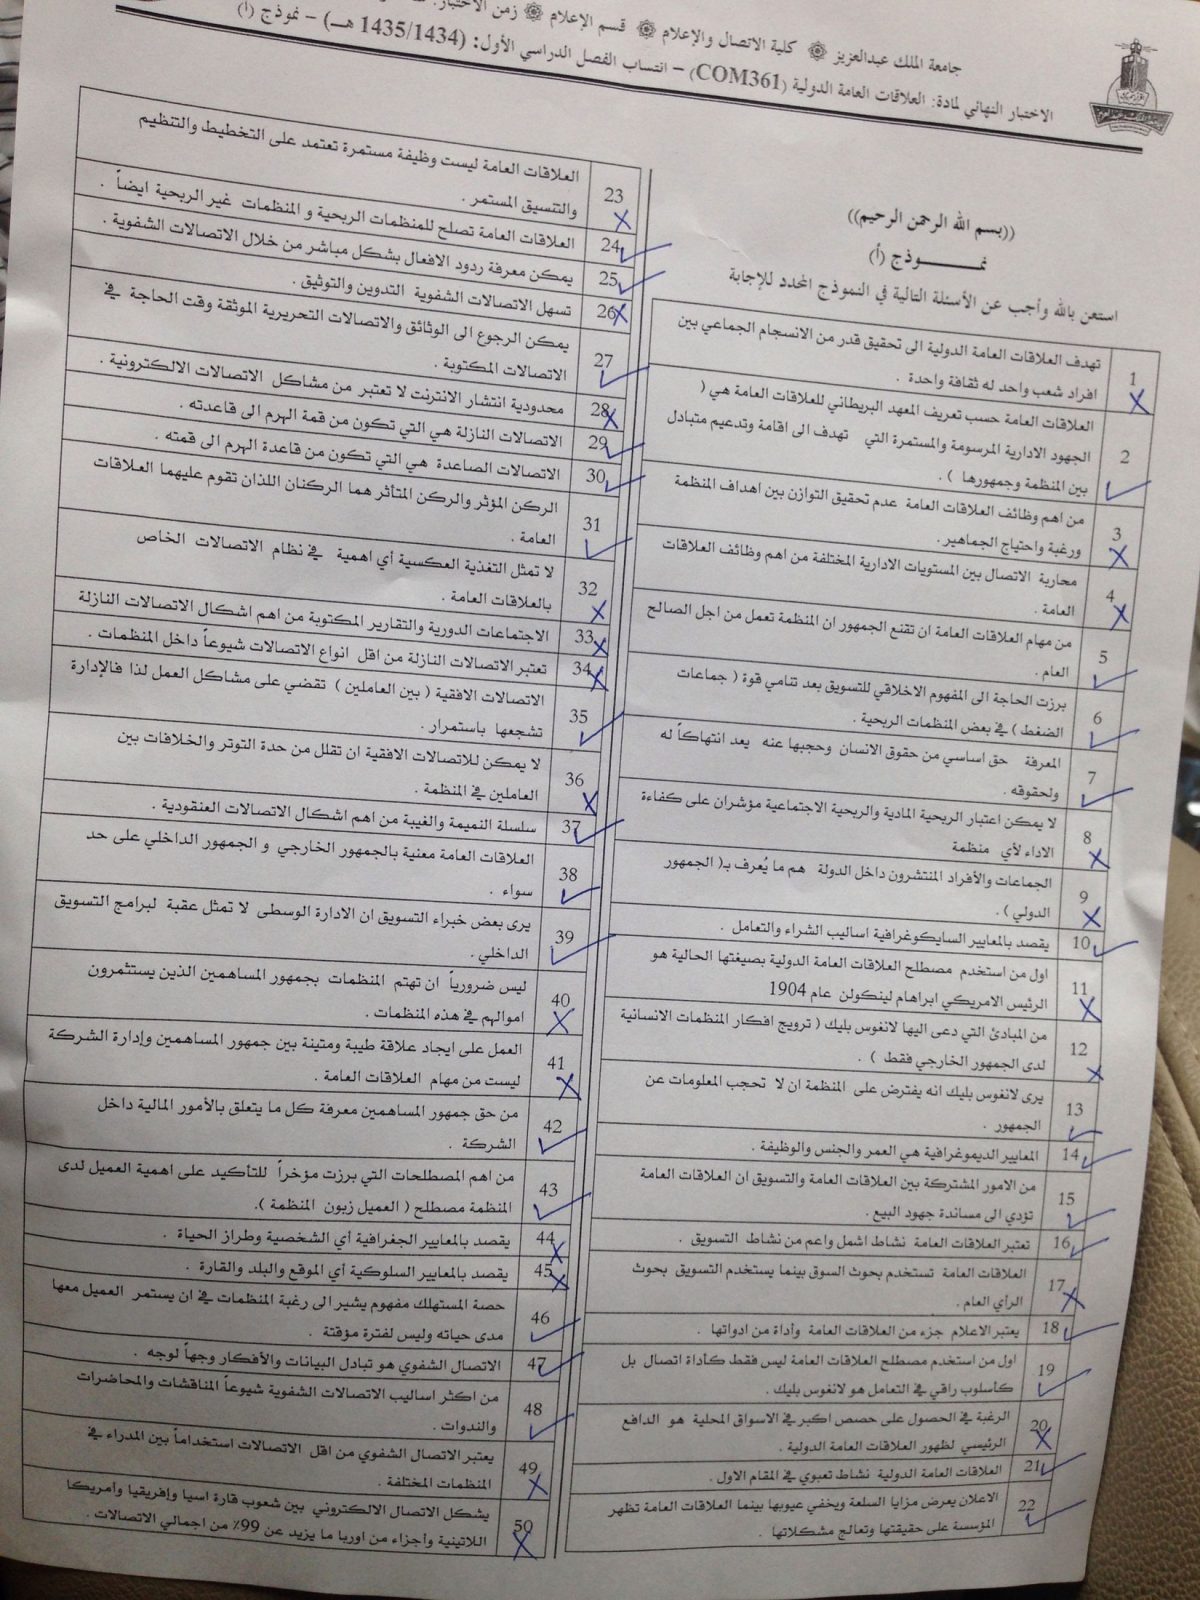 جامعة الملك عبدالعزيز ۞ كلية الاتصال والإعلام ۞ قسم الإعلام ۞ زمن الاختبار:
الاختبار النهائي لمادة: العلاقات العامة الدولية (COM361) – انتساب الفصل الدراسي الأول: (1435/1434 هـ) – نموذج (أ)
((بسم الله الرحمن الرحيم))
نمـــــــوذج (أ)
استعن بالله وأجب عن الأسئلة التالية في النموذج المحدد للإجابة
1 تهدف العلاقات العامة الدولية الى تحقيق قدر من الانسجام الجماعي بين
افراد شعب واحد له ثقافة واحدة .
2 العلاقات العامة حسب تعريف المعهد البريطاني للعلاقات العامة هي (
الجهود الادارية المرسومة والمستمرة التي تهدف الى اقامة وتدعيم متبادل
بين المنظمة وجمهورها ) .
3 من اهم وظائف العلاقات العامة عدم تحقيق التوازن بين اهداف المنظمة
ورغبة واحتياج الجماهير.
4 محاربة الاتصال بين المستويات الادارية المختلفة من اهم وظائف العلاقات
العامة .
5 من مهام العلاقات العامة ان تقنع الجمهور ان المنظمة تعمل من اجل الصالح
العام .
6 برزت الحاجة الى المفهوم الاخلاقي للتسويق بعد تنامي قوة ( جماعات
الضغط ) في بعض المنظمات الربحية .
7 المعرفة حق اساسي من حقوق الانسان وحجبها عنه يعد انتهاكاً له
ولحقوقه .
8 لا يمكن اعتبار الربحية المادية والربحية الاجتماعية مؤشران على كفاءة
الاداء لأي منظمة
9 الجماعات والأفراد المنتشرون داخل الدولة هم ما يُعرف بـ( الجمهور
الدولي ) .
10 يقصد بالمعايير السايكوغرافية اساليب الشراء والتعامل .
11 اول من استخدم مصطلح العلاقات العامة الدولية بصيغتها الحالية هو
الرئيس الامريكي ابراهام لينكولن عام 1904
12 من المبادئ التي دعى اليها لانغوس بليك ( ترويج افكار المنظمات الانسانية
لدى الجمهور الخارجي فقط ) .
13 يرى لانغوس بليك انه يفترض على المنظمة ان لا تحجب المعلومات عن
الجمهور .
14 المعايير الديموغرافية هي العمر والجنس والوظيفة .
15 من الامور المشتركة بين العلاقات العامة والتسويق ان العلاقات العامة
تؤدي الى مساندة جهود البيع .
16 تعتبر العلاقات العامة نشاط اشمل واعم من نشاط التسويق .
17 العلاقات العامة تستخدم بحوث السوق بينما يستخدم التسويق بحوث
الرأي العام .
18 يعتبر الاعلام جزء من العلاقات العامة وأداة من ادواتها .
19 اول من استخدم مصطلح العلاقات العامة ليس فقط كأداة اتصال بل
كأسلوب راقي في التعامل هو لانغوس بليك .
20 الرغبة في الحصول على حصص اكبر في الاسواق المحلية هو الدافع
الرئيسي لظهور العلاقات العامة الدولية .
21 العلاقات العامة الدولية نشاط تعبوي في المقام الاول .
22 الاعلان يعرض مزايا السلعة ويخفي عيوبها بينما العلاقات العامة تظهر
المؤسسة على حقيقتها وتعالج مشكلاتها .
23 العلاقات العامة ليست وظيفة مستمرة تعتمد على التخطيط والتنظيم
والتنسيق المستمر .
24 العلاقات العامة تصلح للمنظمات الربحية و المنظمات غير الربحية ايضاً .
25 يمكن معرفة ردود الافعال بشكل مباشر من خلال الاتصالات الشفوية .
26 تسهل الاتصالات الشفوية التدوين والتوثيق .
27 يمكن الرجوع الى الوثائق والاتصالات التحريرية الموثقة وقت الحاجة في
الاتصالات المكتوبة .
28 محدودية انتشار الانترنت لا تعتبر من مشاكل الاتصالات الالكترونية .
29 الاتصالات النازلة هي التي تكون من قمة الهرم الى قاعدته .
30 الاتصالات الصاعدة هي التي تكون من قاعدة الهرم الى قمته .
31 الركن المؤثر والركن المتأثر هما الركنان اللذان تقوم عليهما العلاقات
العامة .
32 لا تمثل التغذية العكسية أي اهمية في نظام الاتصالات الخاص
بالعلاقات العامة .
33 الاجتماعات الدورية والتقارير المكتوبة من اهم اشكال الاتصالات النازلة
34 تعتبر الاتصالات النازلة من اقل انواع الاتصالات شيوعاً داخل المنظمات .
35 الاتصالات الافقية ( بين العاملين ) تقضي على مشاكل العمل لذا فالإدارة
تشجعها باستمرار .
36 لا يمكن للاتصالات الافقية ان تقلل من حدة التوتر والخلافات بين
العاملين في المنظمة .
37 سلسلة النميمة والغيبة من اهم اشكال الاتصالات العنقودية .
38 العلاقات العامة معنية بالجمهور الخارجي و الجمهور الداخلي على حد
سواء .
39 يرى بعض خبراء التسويق ان الادارة الوسطى لا تمثل عقبة لبرامج التسويق
الداخلي .
40 ليس ضرورياً ان تهتم المنظمات بجمهور المساهمين الذين يستثمرون
اموالهم في هذه المنظمات .
41 العمل على ايجاد علاقة طيبة ومتينة بين جمهور المساهمين وإدارة الشركة
ليست من مهام العلاقات العامة .
42 من حق جمهور المساهمين معرفة كل ما يتعلق بالأمور المالية داخل
الشركة .
43 من اهم المصطلحات التي برزت مؤخراً للتأكيد على اهمية العميل لدى
المنظمة مصطلح ( العميل زبون المنظمة ).
44 يقصد بالمعايير الجغرافية أي الشخصية وطراز الحياة .
45 يقصد بالمعايير السلوكية أي الموقع والبلد والقارة .
46 حصة المستهلك مفهوم يشير الى رغبة المنظمات في ان يستمر العميل معها
مدى حياته وليس لفترة مؤقتة .
47 الاتصال الشفوي هو تبادل البيانات والأفكار وجهاً لوجه .
48 من اكثر اساليب الاتصالات الشفوية شيوعاً المناقشات والمحاضرات
والندوات .
49 يعتبر الاتصال الشفوي من اقل الاتصالات استخداماً بين المدراء في
المنظمات المختلفة .
50 يشكل الاتصال الالكتروني بين شعوب قارة اسيا وإفريقيا وأمريكا
اللاتينية وأجزاء من اوربا ما يزيد عن 99٪ من اجمالي الاتصالات .